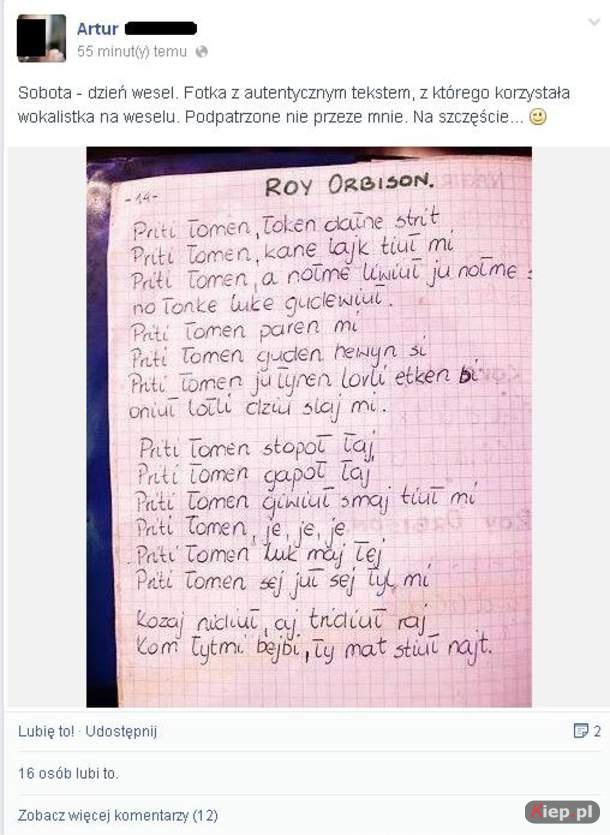 Artur
55 minut(y) temu
Sobota - dzień wesel. Fotka z autentycznym tekstem, z którego korzystała
wokalistka na weselu. Podpatrzone nie przeze mnie. Na szczęście...
-14-
ROY ORBISON.
Priti łomen, łoken dałne strit
Priti łomen, kane łajk tiuł mi
Priti łomen, a notme liwiuł ju notme
no łonke luke gudewiuł.
Priti łomen paren mi
Priti łomen guden hewyn si
Priti łomen ju łynen lovli etken bi
oniuł lotli dziu slaj mi.
Priti łomen stopoł łaj
Priti łomen gapoł łaj
Priti łomen giwiuł smaj tiuł mi
Priti łomen, je, je, je
Priti łomen luk maj łej
Priti łomen sej juł sej łyl mi
Kozaj nidiuł, aj tridiuł raj
Kom łytmi bejbi, ły mat stiuł najt.
Lubię to! · Udostępnij
2
16 osób lubi to.
Zobacz więcej komentarzy (12)
Kiep.pl